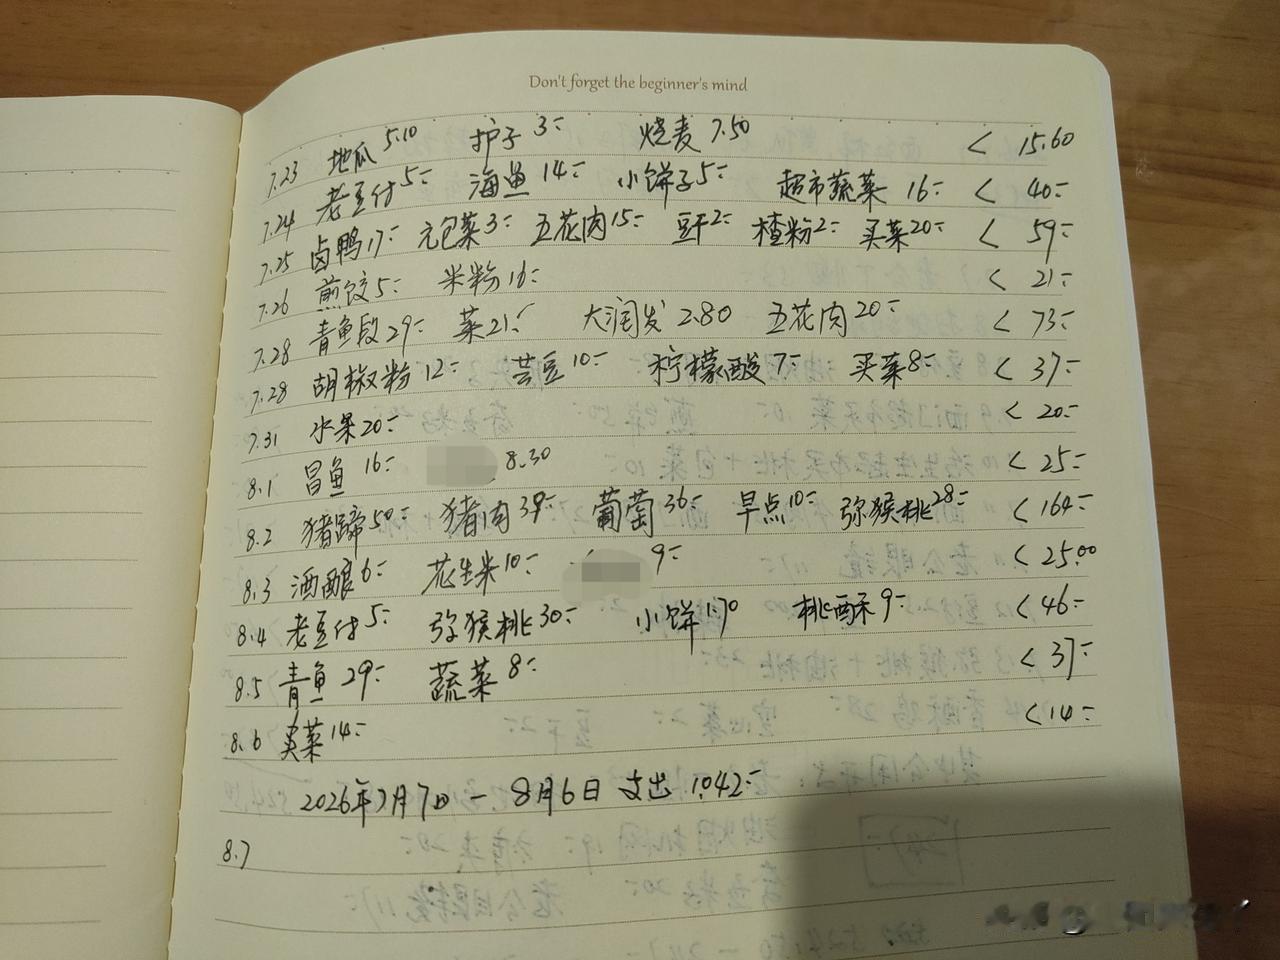 Don't forget the beginner's mind
7.23 地瓜 5.10 护子 3= 烧麦 7.50 < 15.60
7.24 老豆付 5= 海鱼 14= 小饼子 5= 超市蔬菜 16= < 40=
7.25 卤鸭 17= 元包菜 3= 五花肉 15= 豆干 2= 楂粉 2= 买菜 20= < 59=
7.26 煎饺 5= 米粉 16= < 21=
7.28 青鱼段 29= 菜 21= 大润发 2.80 五花肉 20= < 73=
7.28 胡椒粉 12= 芸豆 10= 柠檬酸 7= 买菜 8= < 37=
7.31 水果 20= < 20=
8.1 昌鱼 16= 8.30 < 25=
8.2 猪蹄 50= 猪肉 39= 葡萄 36= 早点 10= 弥猴桃 28= < 164=
8.3 酒酿 6= 花生米 10= 9= < 25.00
8.4 老豆付 5= 弥猴桃 30= 小饼 1.70 桃酥 9= < 46=
8.5 青鱼 29= 蔬菜 8= < 37=
8.6 买菜 14= < 14=
2026年7月7日 — 8月6日 支出 1042=
8.7